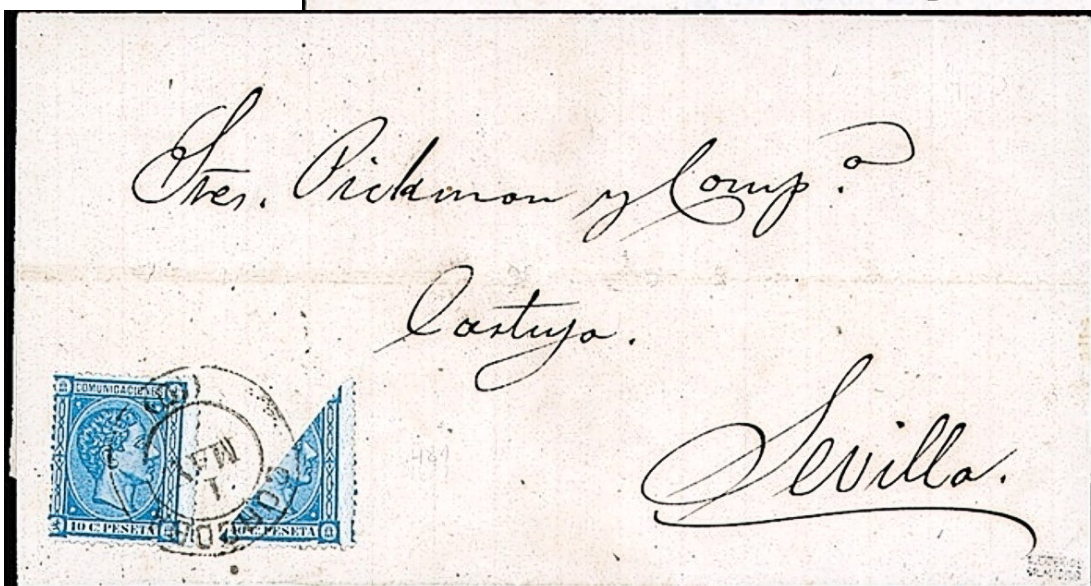 Sres. Pickman y Comp.ª
Cartuja.
Sevilla.
COMUNICACIONES
10 Cs PESETA
10 Cs PESETA
MAY
1